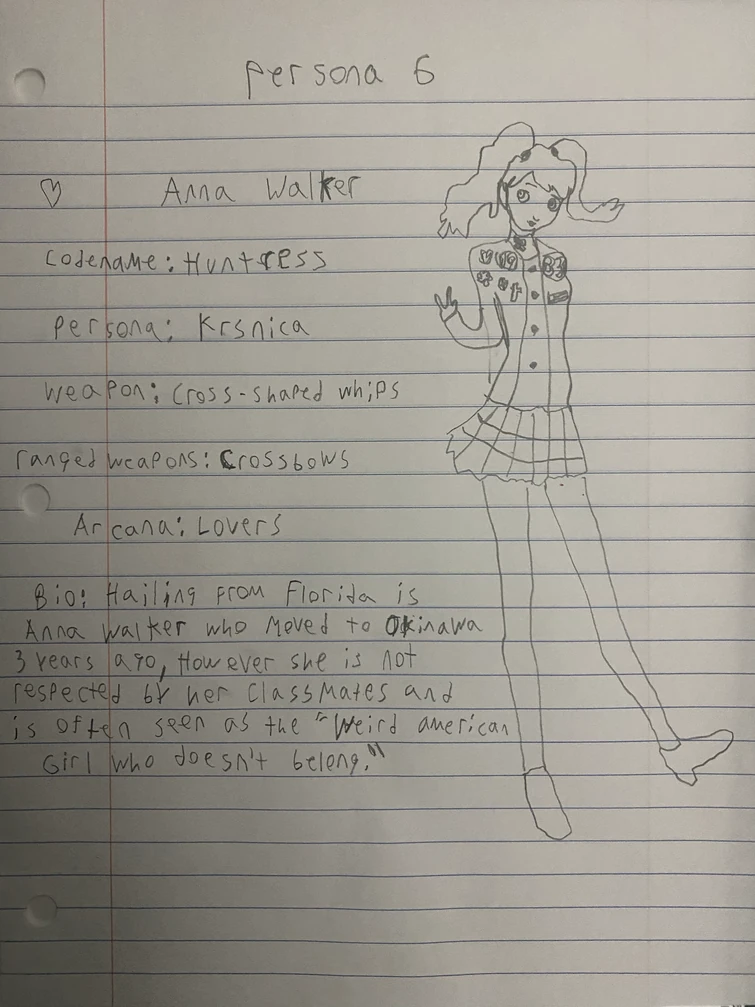 Persona 6
Anna Walker
Codename: Huntress
Persona: Krsnica
Weapon: Cross-shaped whips
ranged weapons: Crossbows
Arcana: Lovers
Bio: Hailing from Florida is
Anna Walker who Moved to Okinawa
3 years ago, However she is not
respected by her classmates and
is often seen as the "Weird american
Girl who doesn't belong."